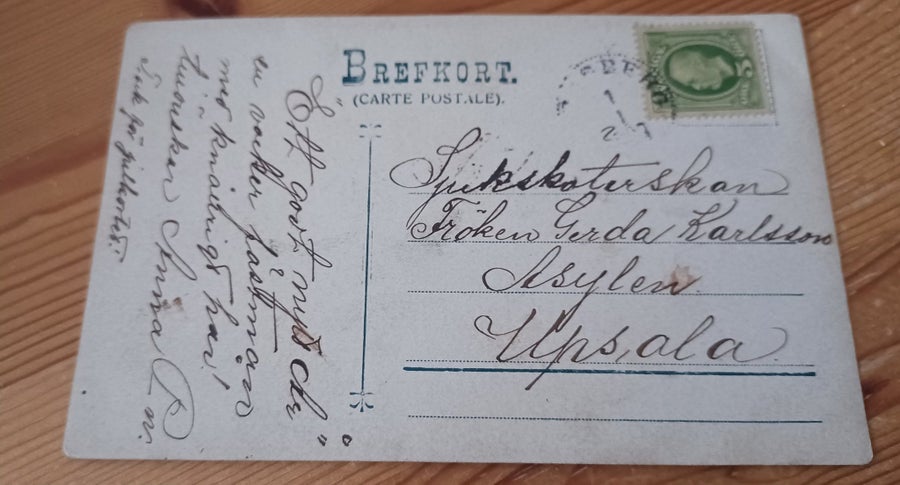 BREFKORT.
(CARTE POSTALE).
Ett godt nytt år
en vacker fästman
må knäligt har!
önskar Anna P
Tack för julkortet
5
Sjukskoterskan
Fröken Gerda Karlsson
Asylen
Upsala.